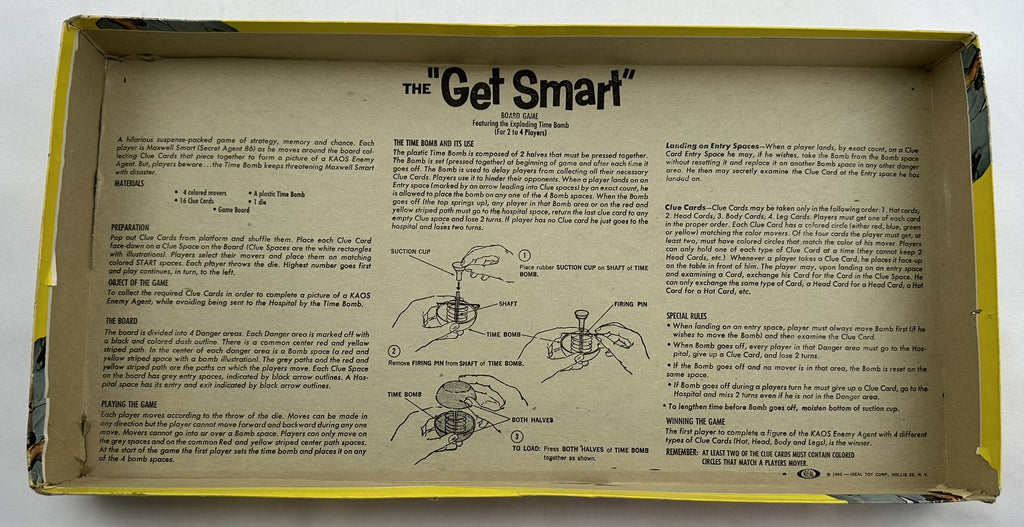 THE "Get Smart"
BOARD GAME
Featuring the Exploding Time Bomb
(For 2 to 4 Players)
A hilarious suspense-packed game of strategy, memory and chance. Each
player is Maxwell Smart (Secret Agent 86) as he moves around the board col-
lecting Clue Cards that piece together to form a picture of a KAOS Enemy
Agent. But, players beware...the Time Bomb keeps threatening Maxwell Smart
with disaster.
MATERIALS
• 4 colored movers
• A plastic Time Bomb
• 16 Clue Cards
• 1 die
• Game Board
PREPARATION
Pop out Clue Cards from platform and shuffle them. Place each Clue Card
face-down on a Clue Space on the Board (Clue Spaces are the white rectangles
with illustrations). Players select their movers and place them on matching
colored START spaces. Each player throws the die. Highest number goes first
and play continues, in turn, to the left.
OBJECT OF THE GAME
To collect the required Clue Cards in order to complete a picture of a KAOS
Enemy Agent, while avoiding being sent to the Hospital by the Time Bomb.
THE BOARD
The board is divided into 4 Danger areas. Each Danger area is marked off with
a black and colored dash outline. There is a common center red and yellow
striped path. In the center of each danger area is a Bomb space (a red and
yellow striped space with a bomb illustration). The grey paths and the red and
yellow striped path are the paths on which the players move. Each Clue Space
on the board has grey entry spaces, indicated by black arrow outlines. A Hos-
pital space has its entry and exit indicated by black arrow outlines.
PLAYING THE GAME
Each player moves according to the throw of the die. Moves can be made in
any direction but the player cannot move forward and backward during any one
move. Movers cannot go into or over a Bomb space. Players can only move on
the grey spaces and on the common Red and yellow striped center path spaces.
At the start of the game the first player sets the time bomb and places it on any
of the 4 bomb spaces.
THE TIME BOMB AND ITS USE
The plastic Time Bomb is composed of 2 halves that must be pressed together.
The Bomb is set (pressed together) at beginning of game and after each time it
goes off. The Bomb is used to delay players from collecting all their necessary
Clue Cards. Players use it to hinder their opponents. When a player lands on an
Entry space (marked by an arrow leading into Clue spaces) by an exact count, he
is allowed to place the bomb on any one of the 4 Bomb spaces. When the Bomb
goes off (the top springs up), any player in that Bomb area or on the red and
yellow striped path must go to the hospital space, return the last clue card to any
empty Clue space and lose 2 turns. If player has no Clue card he just goes to the
hospital and loses two turns.
SUCTION CUP
1
Place rubber SUCTION CUP on SHAFT of TIME
BOMB.
SHAFT
FIRING PIN
TIME BOMB
2
Remove FIRING PIN from SHAFT of TIME BOMB.
TIME BOMB
BOTH HALVES
3
TO LOAD: Press BOTH HALVES of TIME BOMB
together as shown.
Landing on Entry Spaces—When a player lands, by exact count, on a Clue
Card Entry Space he may, if he wishes, take the Bomb from the Bomb space
without resetting it and replace it on another Bomb space in any other danger
area. He then may secretly examine the Clue Card at the Entry space he has
landed on.
Clue Cards—Clue Cards may be taken only in the following order: 1. Hat cards,
2. Head Cards, 3. Body Cards, 4. Leg Cards. Players must get one of each card
in the proper order. Each Clue Card has a colored circle (either red, blue, green
or yellow) matching the color movers. Of the four cards the player must get, at
least two, must have colored circles that match the color of his mover. Players
can only hold one of each type of Clue Card at a time (they cannot keep 2
Head Cards, etc.). Whenever a player takes a Clue Card, he places it face-up
on the table in front of him. The player may, upon landing on an entry space
and examining a Card, exchange his Card for the Card in the Clue Space. He
can only exchange the same type of Card; a Head Card for a Head Card; a Hat
Card for a Hat Card, etc.
SPECIAL RULES
• When landing on an entry space, player must always move Bomb first (if he
wishes to move the Bomb) and then examine the Clue Card.
• When Bomb goes off, every player in that Danger Area must go to the Hos-
pital, give up a Clue Card, and lose 2 turns.
• If the Bomb goes off and no mover is in that area, the Bomb is reset on the
same space.
• If Bomb goes off during a players turn he must give up a Clue Card, go to the
Hospital and miss 2 turns even if he is not in the Danger Area.
• To lengthen time before Bomb goes off, moisten bottom of suction cup.
WINNING THE GAME
The first player to complete a figure of the KAOS Enemy Agent with 4 different
types of Clue Cards (Hat, Head, Body and Legs), is the winner.
REMEMBER: AT LEAST TWO OF THE CLUE CARDS MUST CONTAIN COLORED
CIRCLES THAT MATCH A PLAYERS MOVER.
IDEAL © 1965—IDEAL TOY CORP., HOLLIS 23, N. Y.